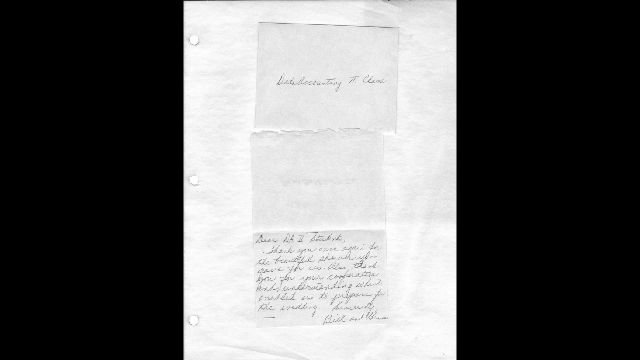 Data Accounting
Dear
Thank you once again for
the beautiful shower you
gave for us. Also, thank
you for your cooperation
and understanding which
enabled us to prepare for
the wedding. Sincerely
Bill and